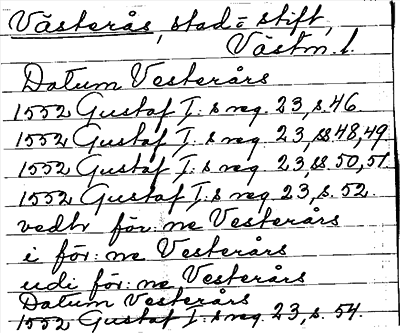 Västerås, stad = stift,
Västm. l.
Datum Vesterårs
1552 Gustaf I:s reg. 23, s. 46
1552 Gustaf I:s reg. 23, ss. 48, 49
1552 Gustaf I:s reg. 23, ss. 50, 51
1552 Gustaf I:s reg. 23, s. 52.
vedtr för:ne Vesterårs
i för:ne Vesterårs
udi för:ne Vesterårs
Datum Vesterårs
1552 Gustaf I:s reg. 23, s. 54.